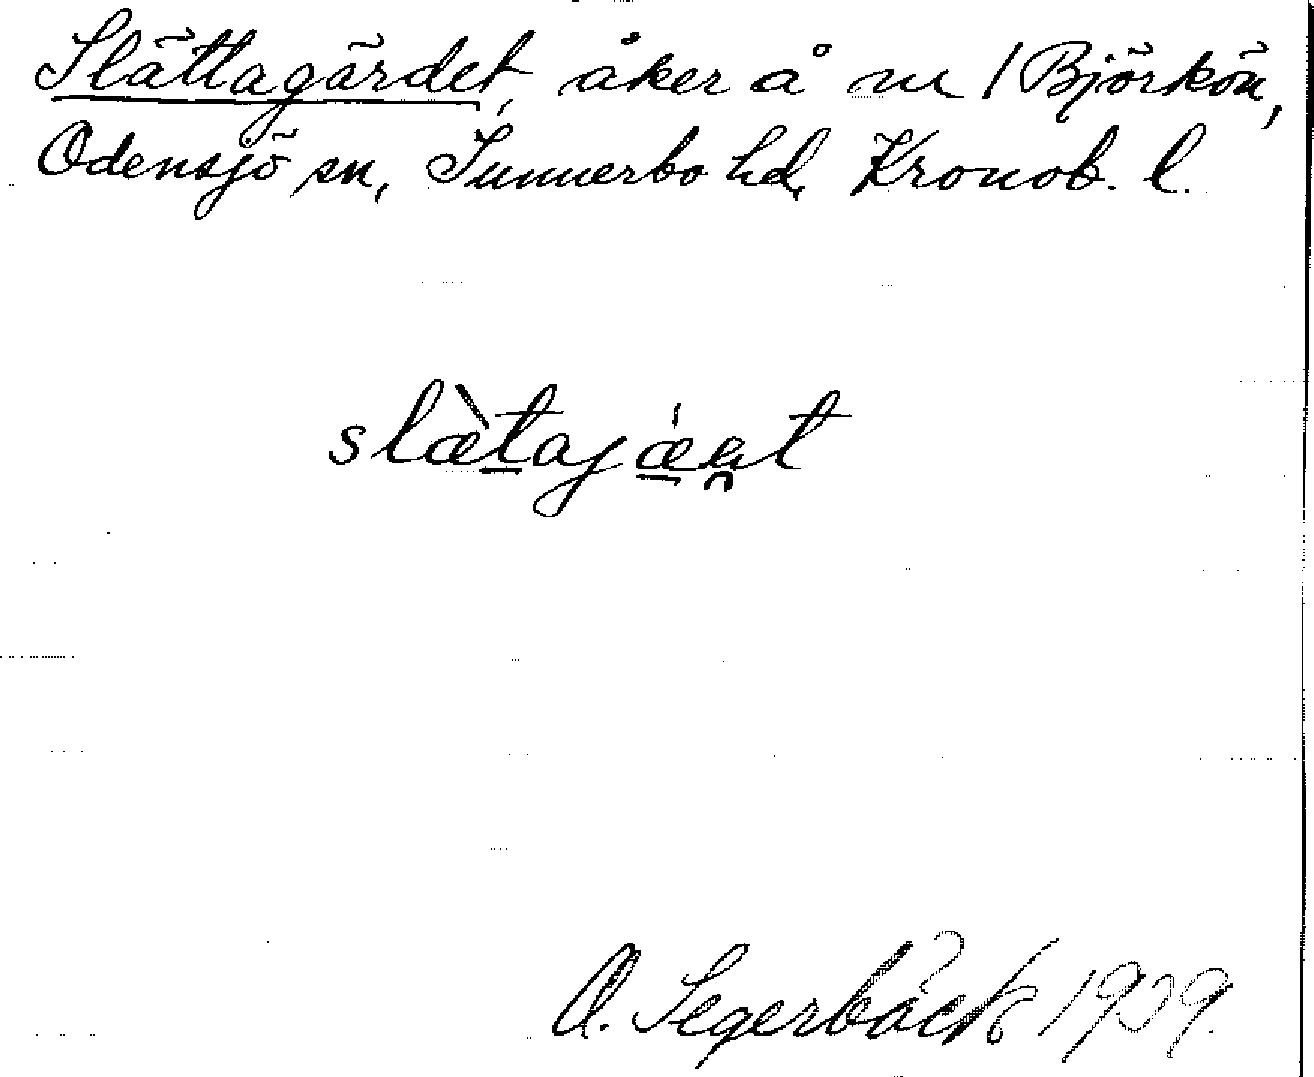 Slättagärdet, åker å nr 1 Björkön,
Odensjö sn, Sunnerbo hd, Kronob. l.
slæ̀tajǽɐ̯t
O. Segerbäck 1929.